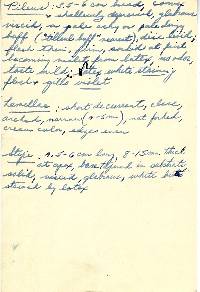 Pileus: 3.5-6 cm broad, convex
& shallowly depressed, glabrous
viscid, pale ochre or pale ding
buff ("tilleul buff" nearest), disc livid,
flesh thin, firm, sordid at first
becoming violet from latex, no odor,
taste mild; latex white staining
flesh & gills violet
Lamellae: short decurrent, close,
arched, narrow (4-5mm), not forked,
cream color, edges even
Stipe: 4.5-6 cm long, 8-15 mm thick
at apex, base
solid, viscid, glabrous, white but
stained by latex